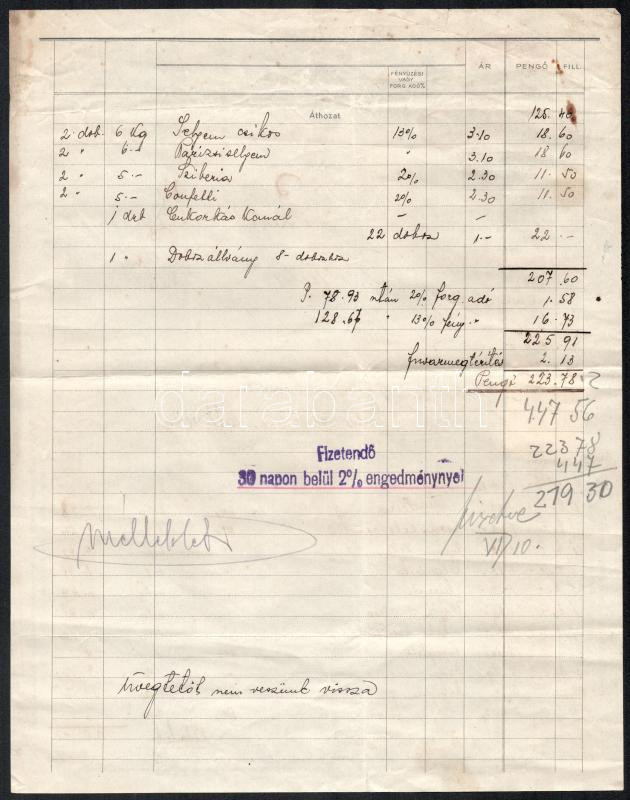 FÉNYŰZÉSI VAGY FORG. ADÓ% ÁR PENGŐ FILL.
Áthozat 125. 40
2 dob. 6 Kg Selyem csikos 13% 3.10 18. 60
2 " 6.- Párizsi selyem " 3.10 18 60
2 " 5.- Sziberia 2% 2.30 11. 50
2 " 5.- Confetti 2% 2.30 11. 50
1 drb Cukorkás Kanál — —
22 doboz 1.- 22 .-
1 " Doboz állvány 8- dobozhoz
207.60
P. 78.93 után 2% forg. adó 1.58
128.67 " 13% fény. " 16.73
225.91
fuvarmegtérítés 2.13
Pengő 223.78
447 56
223 78
4 47
219 30
Fizetendő
30 napon belül 2% engedménynyel
fizetve
VI/10.
Melléklet
Üvegtetőt nem veszünk vissza
darabanth